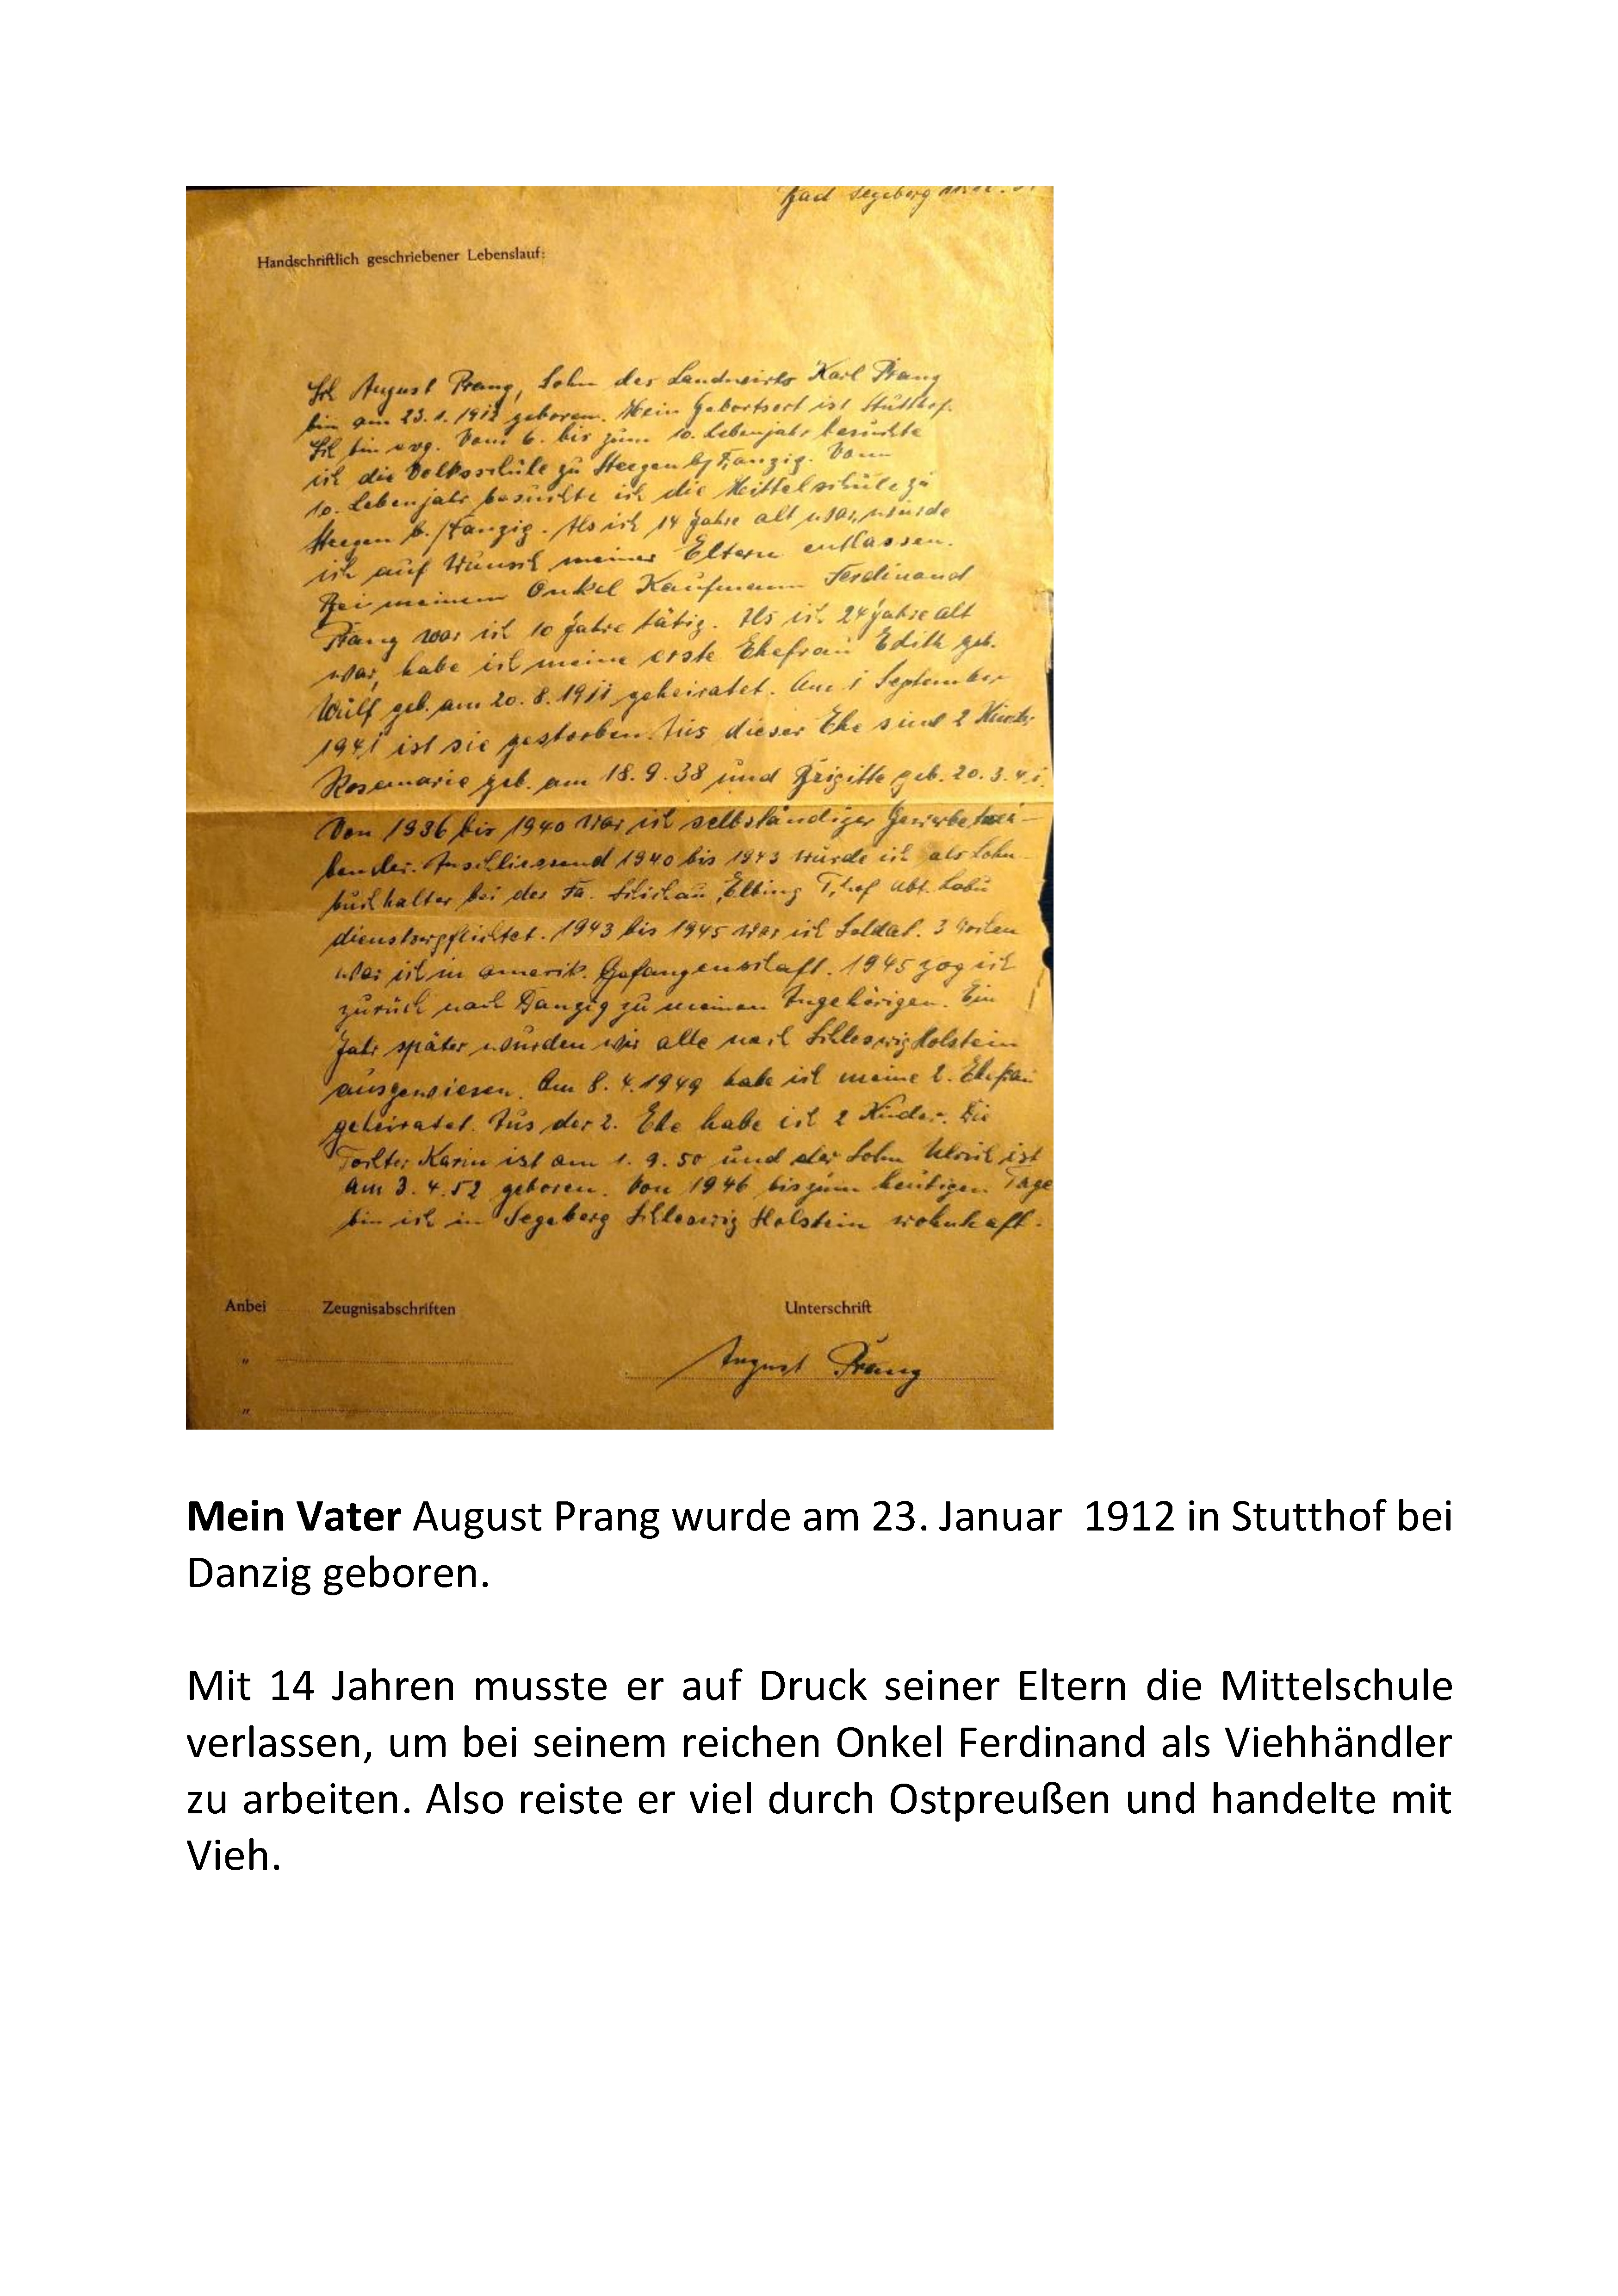 Bad Segeberg
Handschriftlich geschriebener Lebenslauf:
Ich August Prang, Sohn des Landwirts Karl Prang
bin am 23.1.1912 geboren. Mein Geburtsort ist Stutthof.
Ich bin evg. Vom 6. bis zum 10. Lebenjahr besuchte
ich die Volksschule zu Steegen b/Danzig. Vom
10. Lebenjahr besuchte ich die Mittelschule zu
Steegen b./Danzig. Als ich 14 Jahre alt war, wurde
ich auf Wunsch meiner Eltern entlassen.
Bei meinem Onkel Kaufmann Ferdinand
Prang war ich 10 Jahre tätig. Als ich 24 Jahre alt
war, habe ich meine erste Ehefrau Edith geb.
Wulf geb. am 20.8.1911 geheiratet. Am 1 September
1941 ist sie gestorben. Aus dieser Ehe sind 2 Kinder
Rosemarie geb. am 18.9.38 und Brigitte geb. 20.3.41.
Von 1936 bis 1940 war ich selbständiger Gewerbetrei-
bender. Anschliessend 1940 bis 1943 wurde ich als Lohn-
buchhalter bei der Fa. Schichau, Elbing Abt. Lobu
dienstverpflichtet. 1943 bis 1945 war ich Soldat. 3 Wochen
war ich in amerik. Gefangenschaft. 1945 zog ich
zurück nach Danzig zu meinen Angehörigen. Ein
Jahr später wurden wir alle nach Schleswig Holstein
ausgewiesen. Am 8.4.1949 habe ich meine 2. Ehefrau
geheiratet. Aus der 2. Ehe habe ich 2 Kinder. Die
Tochter Karin ist am 1.9.50 und der Sohn Ulrich ist
am 3.4.52 geboren. Von 1946 bis zum heutigen Tage
bin ich in Segeberg Schleswig Holstein wohnhaft.
Anbei Zeugnisabschriften Unterschrift
" August Prang
"
Mein Vater August Prang wurde am 23. Januar 1912 in Stutthof bei
Danzig geboren.
Mit 14 Jahren musste er auf Druck seiner Eltern die Mittelschule
verlassen, um bei seinem reichen Onkel Ferdinand als Viehhändler
zu arbeiten. Also reiste er viel durch Ostpreußen und handelte mit
Vieh.